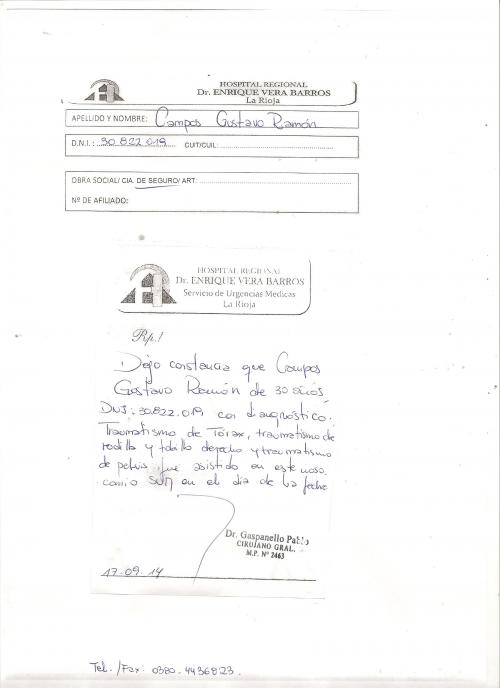 HOSPITAL REGIONAL
Dr. ENRIQUE VERA BARROS
La Rioja
APELLIDO Y NOMBRE: Campos Gustavo Ramón
D.N.I.: 30.822.019 CUIT/CUIL:
OBRA SOCIAL/ CIA. DE SEGURO/ ART:
Nº DE AFILIADO:
HOSPITAL REGIONAL
Dr. ENRIQUE VERA BARROS
Servicio de Urgencias Medicas
La Rioja
Rp.!
Dejo constancia que Campos
Gustavo Ramón de 30 años,
DNI: 30.822.019 con diagnóstico:
Traumatismo de Tórax, traumatismo de
rodilla y tobillo derecho y traumatismo
de pelvis fue asistido en este noso
comio en el dia de la fecha
Dr. Gaspanello Pablo
CIRUJANO GRAL.
M.P. Nº 2463
17.09.14
Tel./Fax: 0380-4436823.